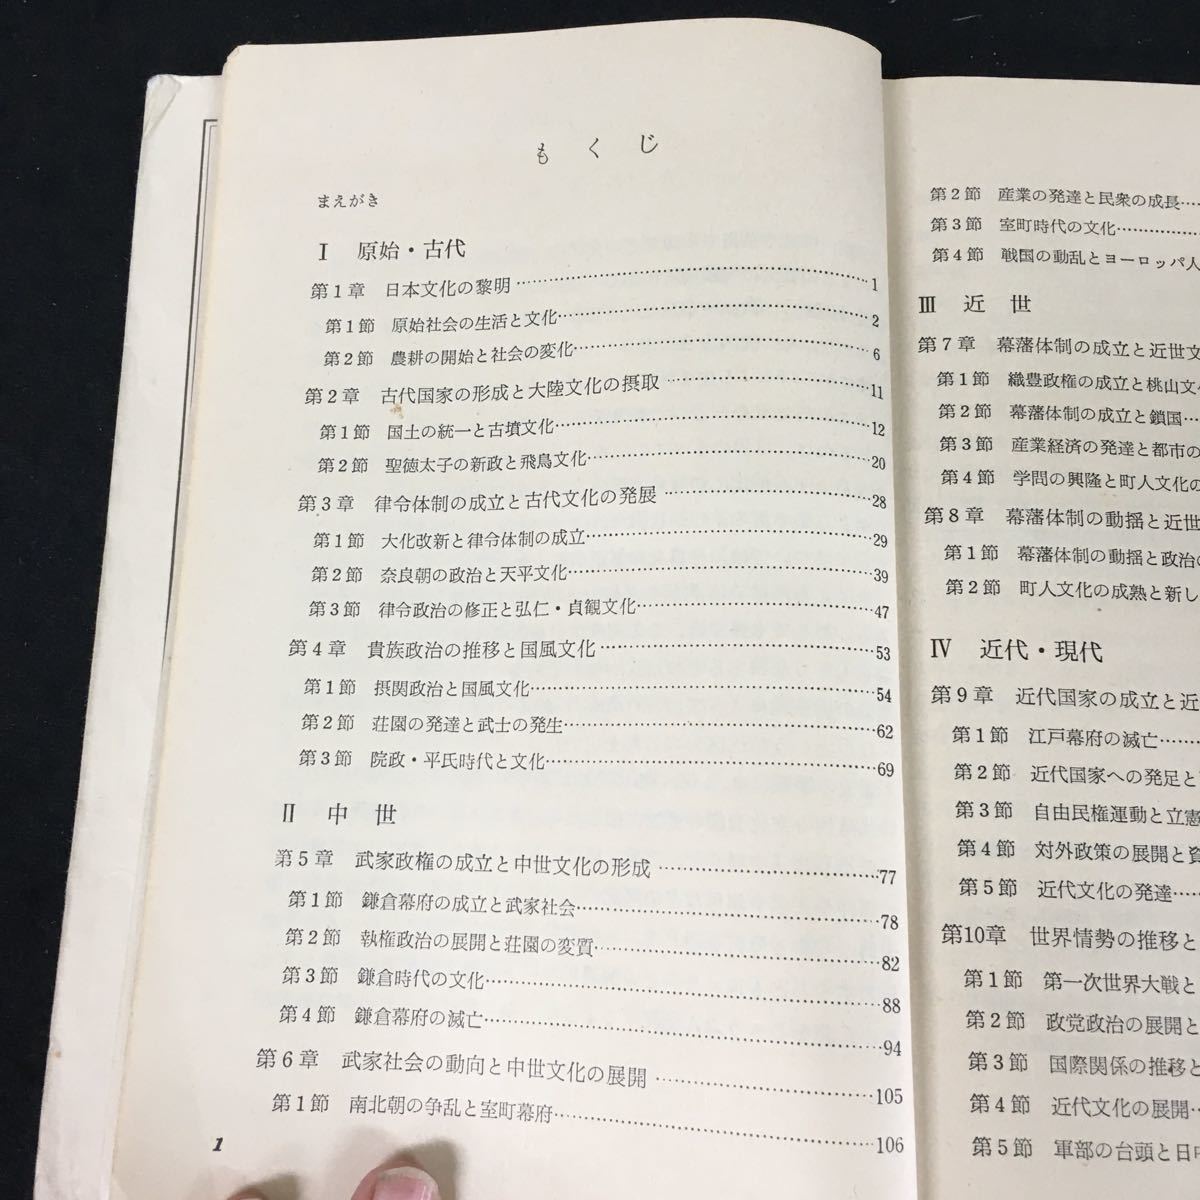 もくじ
まえがき
Ⅰ 原始・古代
第1章 日本文化の黎明……1
第1節 原始社会の生活と文化……2
第2節 農耕の開始と社会の変化……6
第2章 古代国家の形成と大陸文化の摂取……11
第1節 国土の統一と古墳文化……12
第2節 聖徳太子の新政と飛鳥文化……20
第3章 律令体制の成立と古代文化の発展……28
第1節 大化改新と律令体制の成立……29
第2節 奈良朝の政治と天平文化……39
第3節 律令政治の修正と弘仁・貞観文化……47
第4章 貴族政治の推移と国風文化……53
第1節 摂関政治と国風文化……54
第2節 荘園の発達と武士の発生……62
第3節 院政・平氏時代と文化……69
Ⅱ 中世
第5章 武家政権の成立と中世文化の形成……77
第1節 鎌倉幕府の成立と武家社会……78
第2節 執権政治の展開と荘園の変質……82
第3節 鎌倉時代の文化……88
第4節 鎌倉幕府の滅亡……94
第6章 武家社会の動向と中世文化の展開……105
第1節 南北朝の争乱と室町幕府……106
1
第2節 産業の発達と民衆の成長……
第3節 室町時代の文化……
第4節 戦国の動乱とヨーロッパ人
Ⅲ 近世
第7章 幕藩体制の成立と近世文
第1節 織豊政権の成立と桃山文化
第2節 幕藩体制の成立と鎖国……
第3節 産業経済の発達と都市の
第4節 学問の興隆と町人文化の
第8章 幕藩体制の動揺と近世
第1節 幕藩体制の動揺と政治の
第2節 町人文化の成熟と新し
Ⅳ 近代・現代
第9章 近代国家の成立と近
第1節 江戸幕府の滅亡……
第2節 近代国家への発足と
第3節 自由民権運動と立憲
第4節 対外政策の展開と資
第5節 近代文化の発達……
第10章 世界情勢の推移と
第1節 第一次世界大戦と
第2節 政党政治の展開と
第3節 国際関係の推移と
第4節 近代文化の展開……
第5節 軍部の台頭と日中